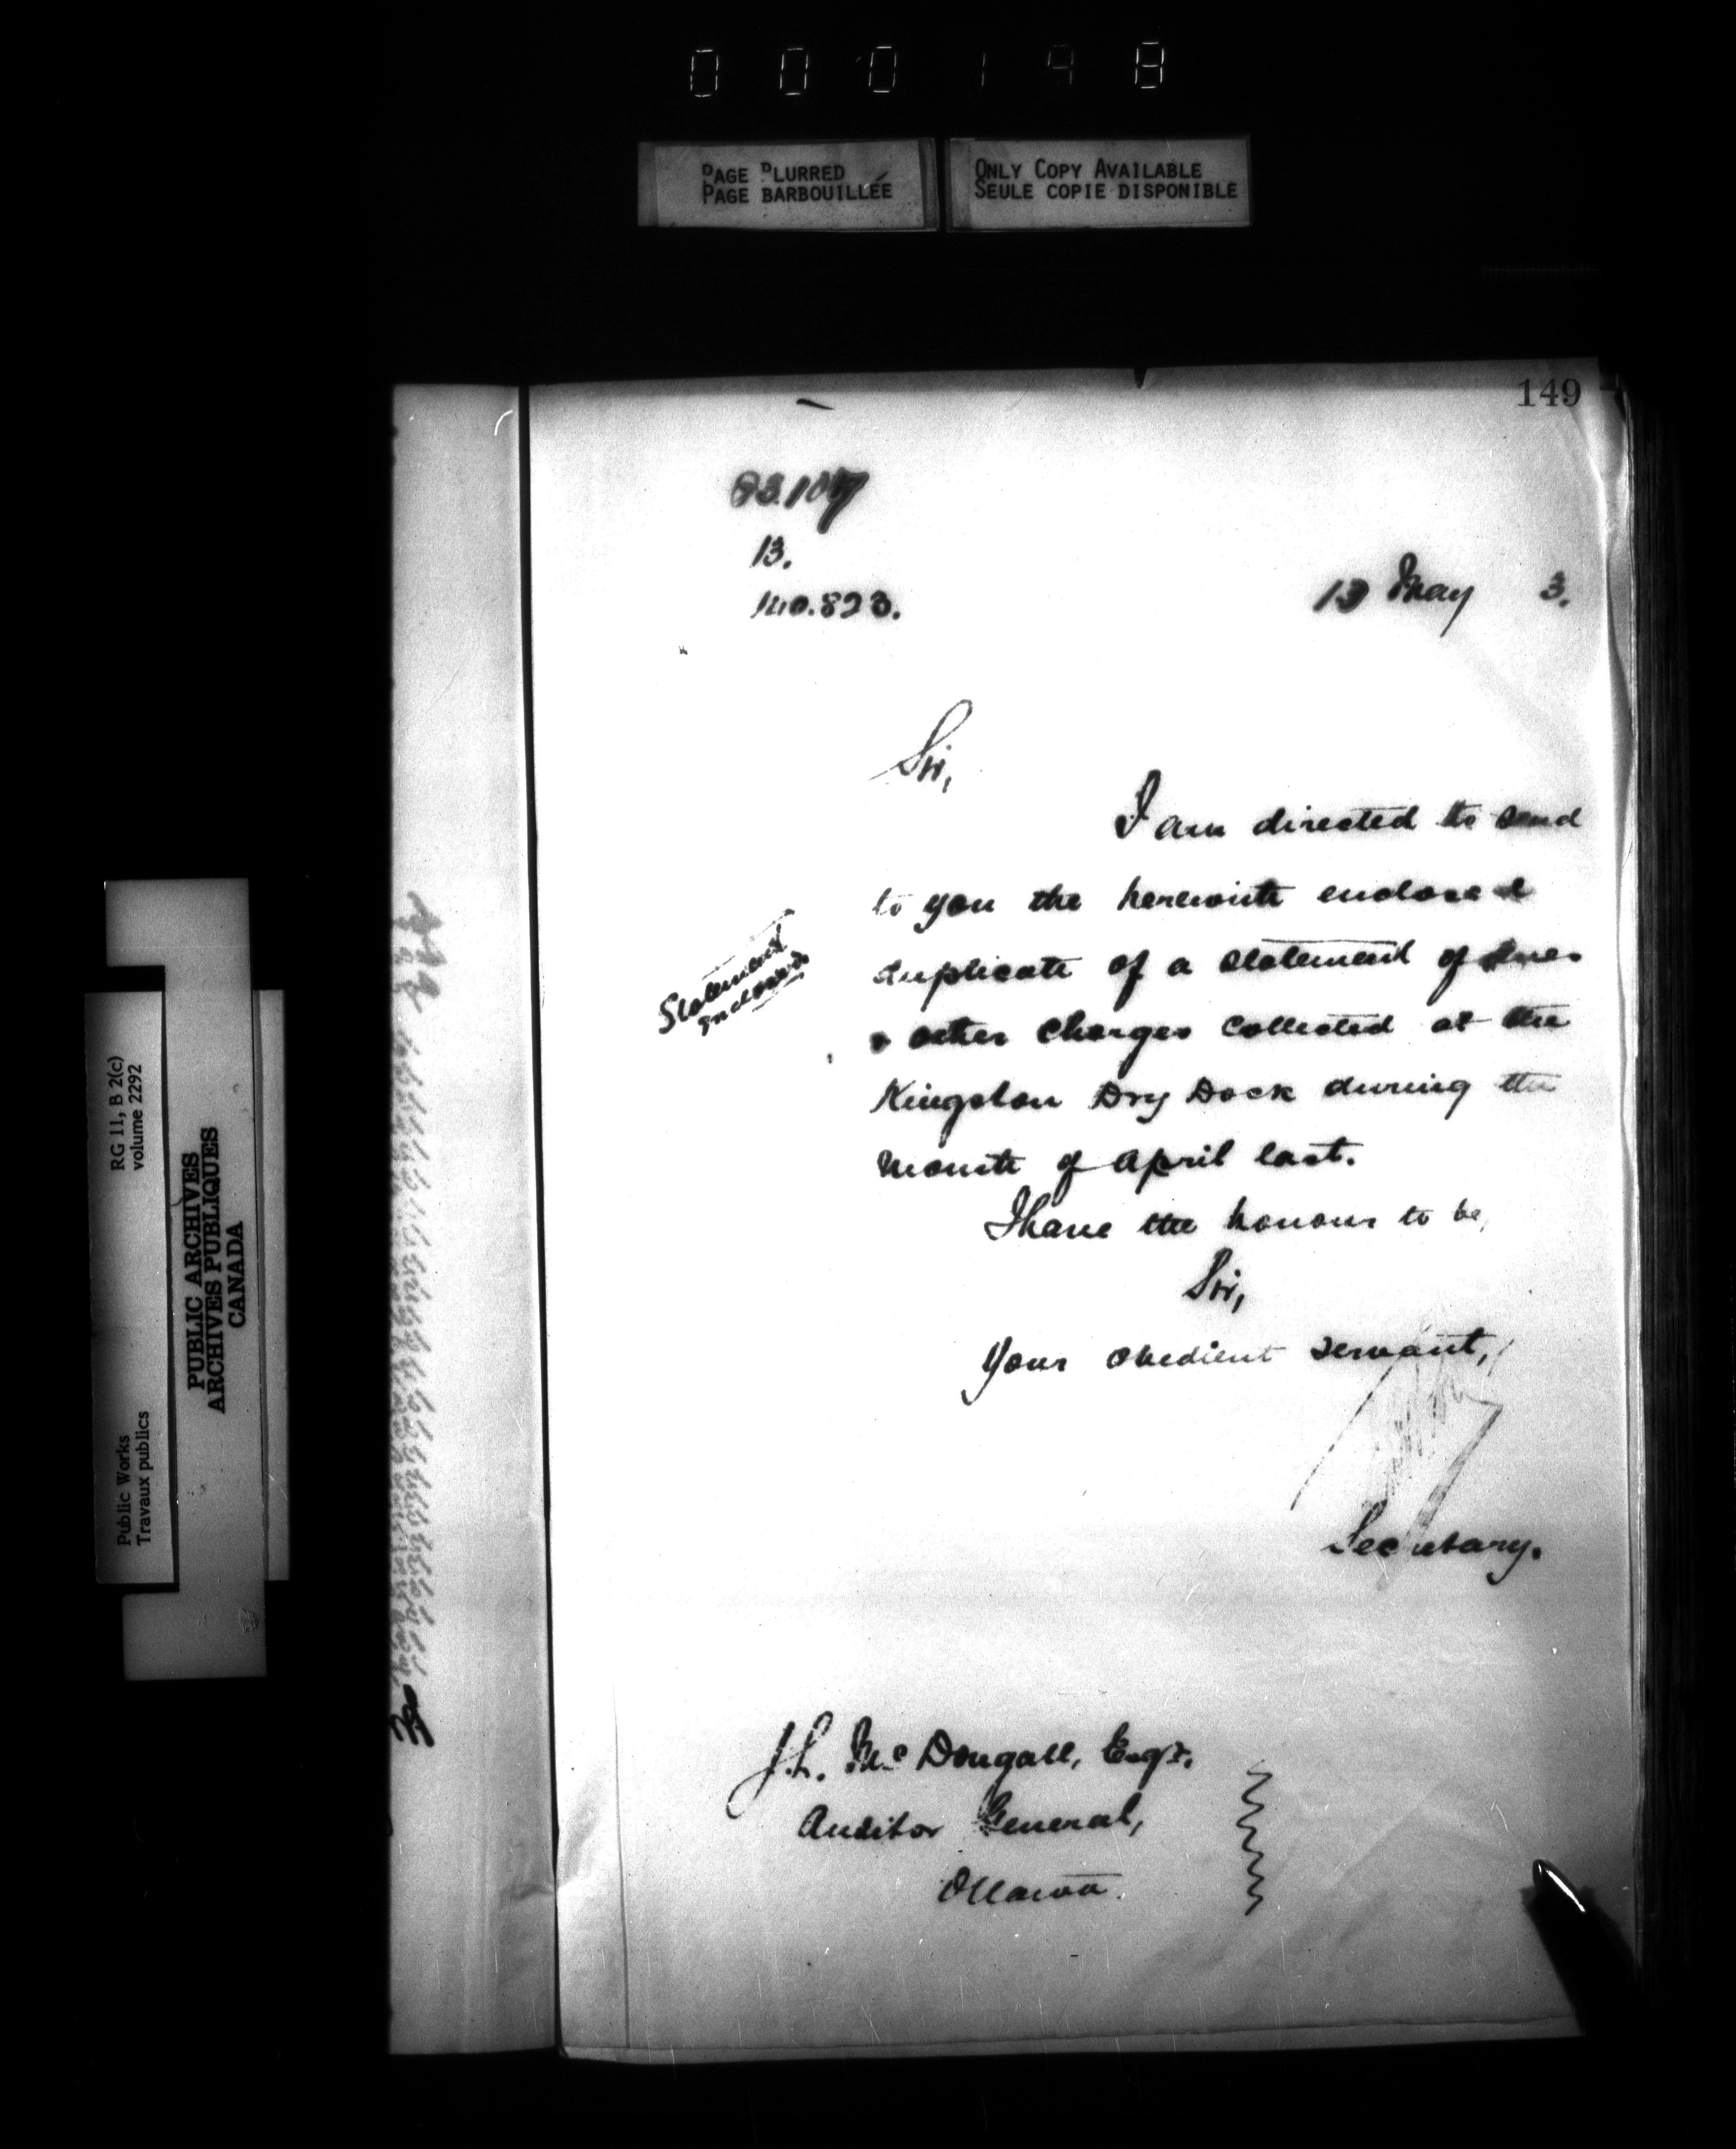 000198
PAGE BLURRED
PAGE BARBOUILLÉE
ONLY COPY AVAILABLE
SEULE COPIE DISPONIBLE
149
13.
140.823.
13 May 3.
Sir,
I am directed to send
to you the herewith enclosed
duplicate of a statement of dues
& other charges collected at the
Kingston Dry Dock during the
month of April last.
Statement
enclosed
I have the honour to be,
Sir,
Your obedient servant,
Secretary.
J. L. McDougall, Esqr.
Auditor General,
Ottawa.
RG 11, B 2(c)
volume 2292
Public Works
Travaux publics
PUBLIC ARCHIVES
ARCHIVES PUBLIQUES
CANADA